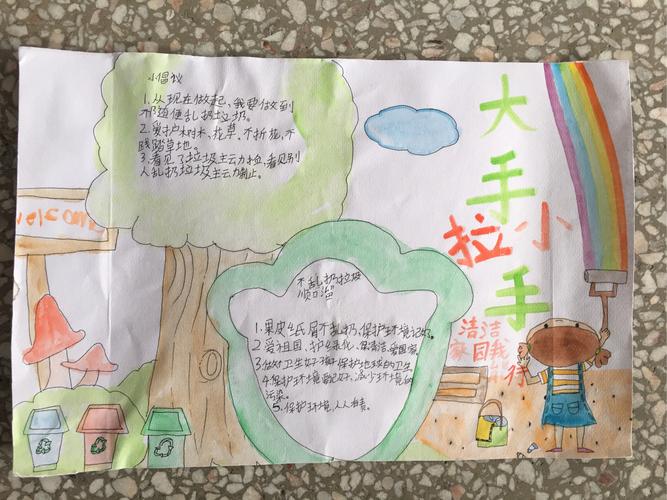 小倡议
1.从现在做起,我要做到
不随便乱扔垃圾。
2.爱护树木、花草、不折花,不
践踏草地。
3.看见了垃圾主动捡,看见别
人乱扔垃圾主动制止。
welcome
大手
拉小
手
清洁
家园我
先行
不乱扔垃圾
顺口溜
1.果皮纸屑不乱扔,保护环境记
2.爱祖国,护绿化,保清洁,爱国家
3.做好卫生好孩子保护地球的卫生
4.保护环境 减少环境的
污染。
5.保护环境,人人有责。